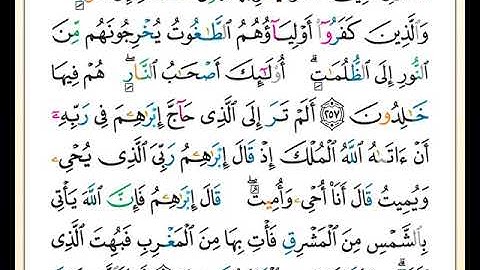 وَٱلَّذِينَ كَفَرُوٓا۟ أَوْلِيَآؤُهُمُ ٱلطَّٰغُوتُ يُخْرِجُونَهُم مِّنَ
ٱلنُّورِ إِلَى ٱلظُّلُمَٰتِ ۗ أُو۟لَٰٓئِكَ أَصْحَٰبُ ٱلنَّارِ ۖ هُمْ فِيهَا
خَٰلِدُونَ ٢٥٧ أَلَمْ تَرَ إِلَى ٱلَّذِى حَآجَّ إِبْرَٰهِۦمَ فِى رَبِّهِۦٓ
أَنْ ءَاتَىٰهُ ٱللَّهُ ٱلْمُلْكَ إِذْ قَالَ إِبْرَٰهِۦمُ رَبِّىَ ٱلَّذِى يُحْىِۦ
وَيُمِيتُ قَالَ أَنَا۠ أُحْىِۦ وَأُمِيتُ ۖ قَالَ إِبْرَٰهِۦمُ فَإِنَّ ٱللَّهَ يَأْتِى
بِٱلشَّمْسِ مِنَ ٱلْمَشْرِقِ فَأْتِ بِهَا مِنَ ٱلْمَغْرِبِ فَبُهِتَ ٱلَّذِى